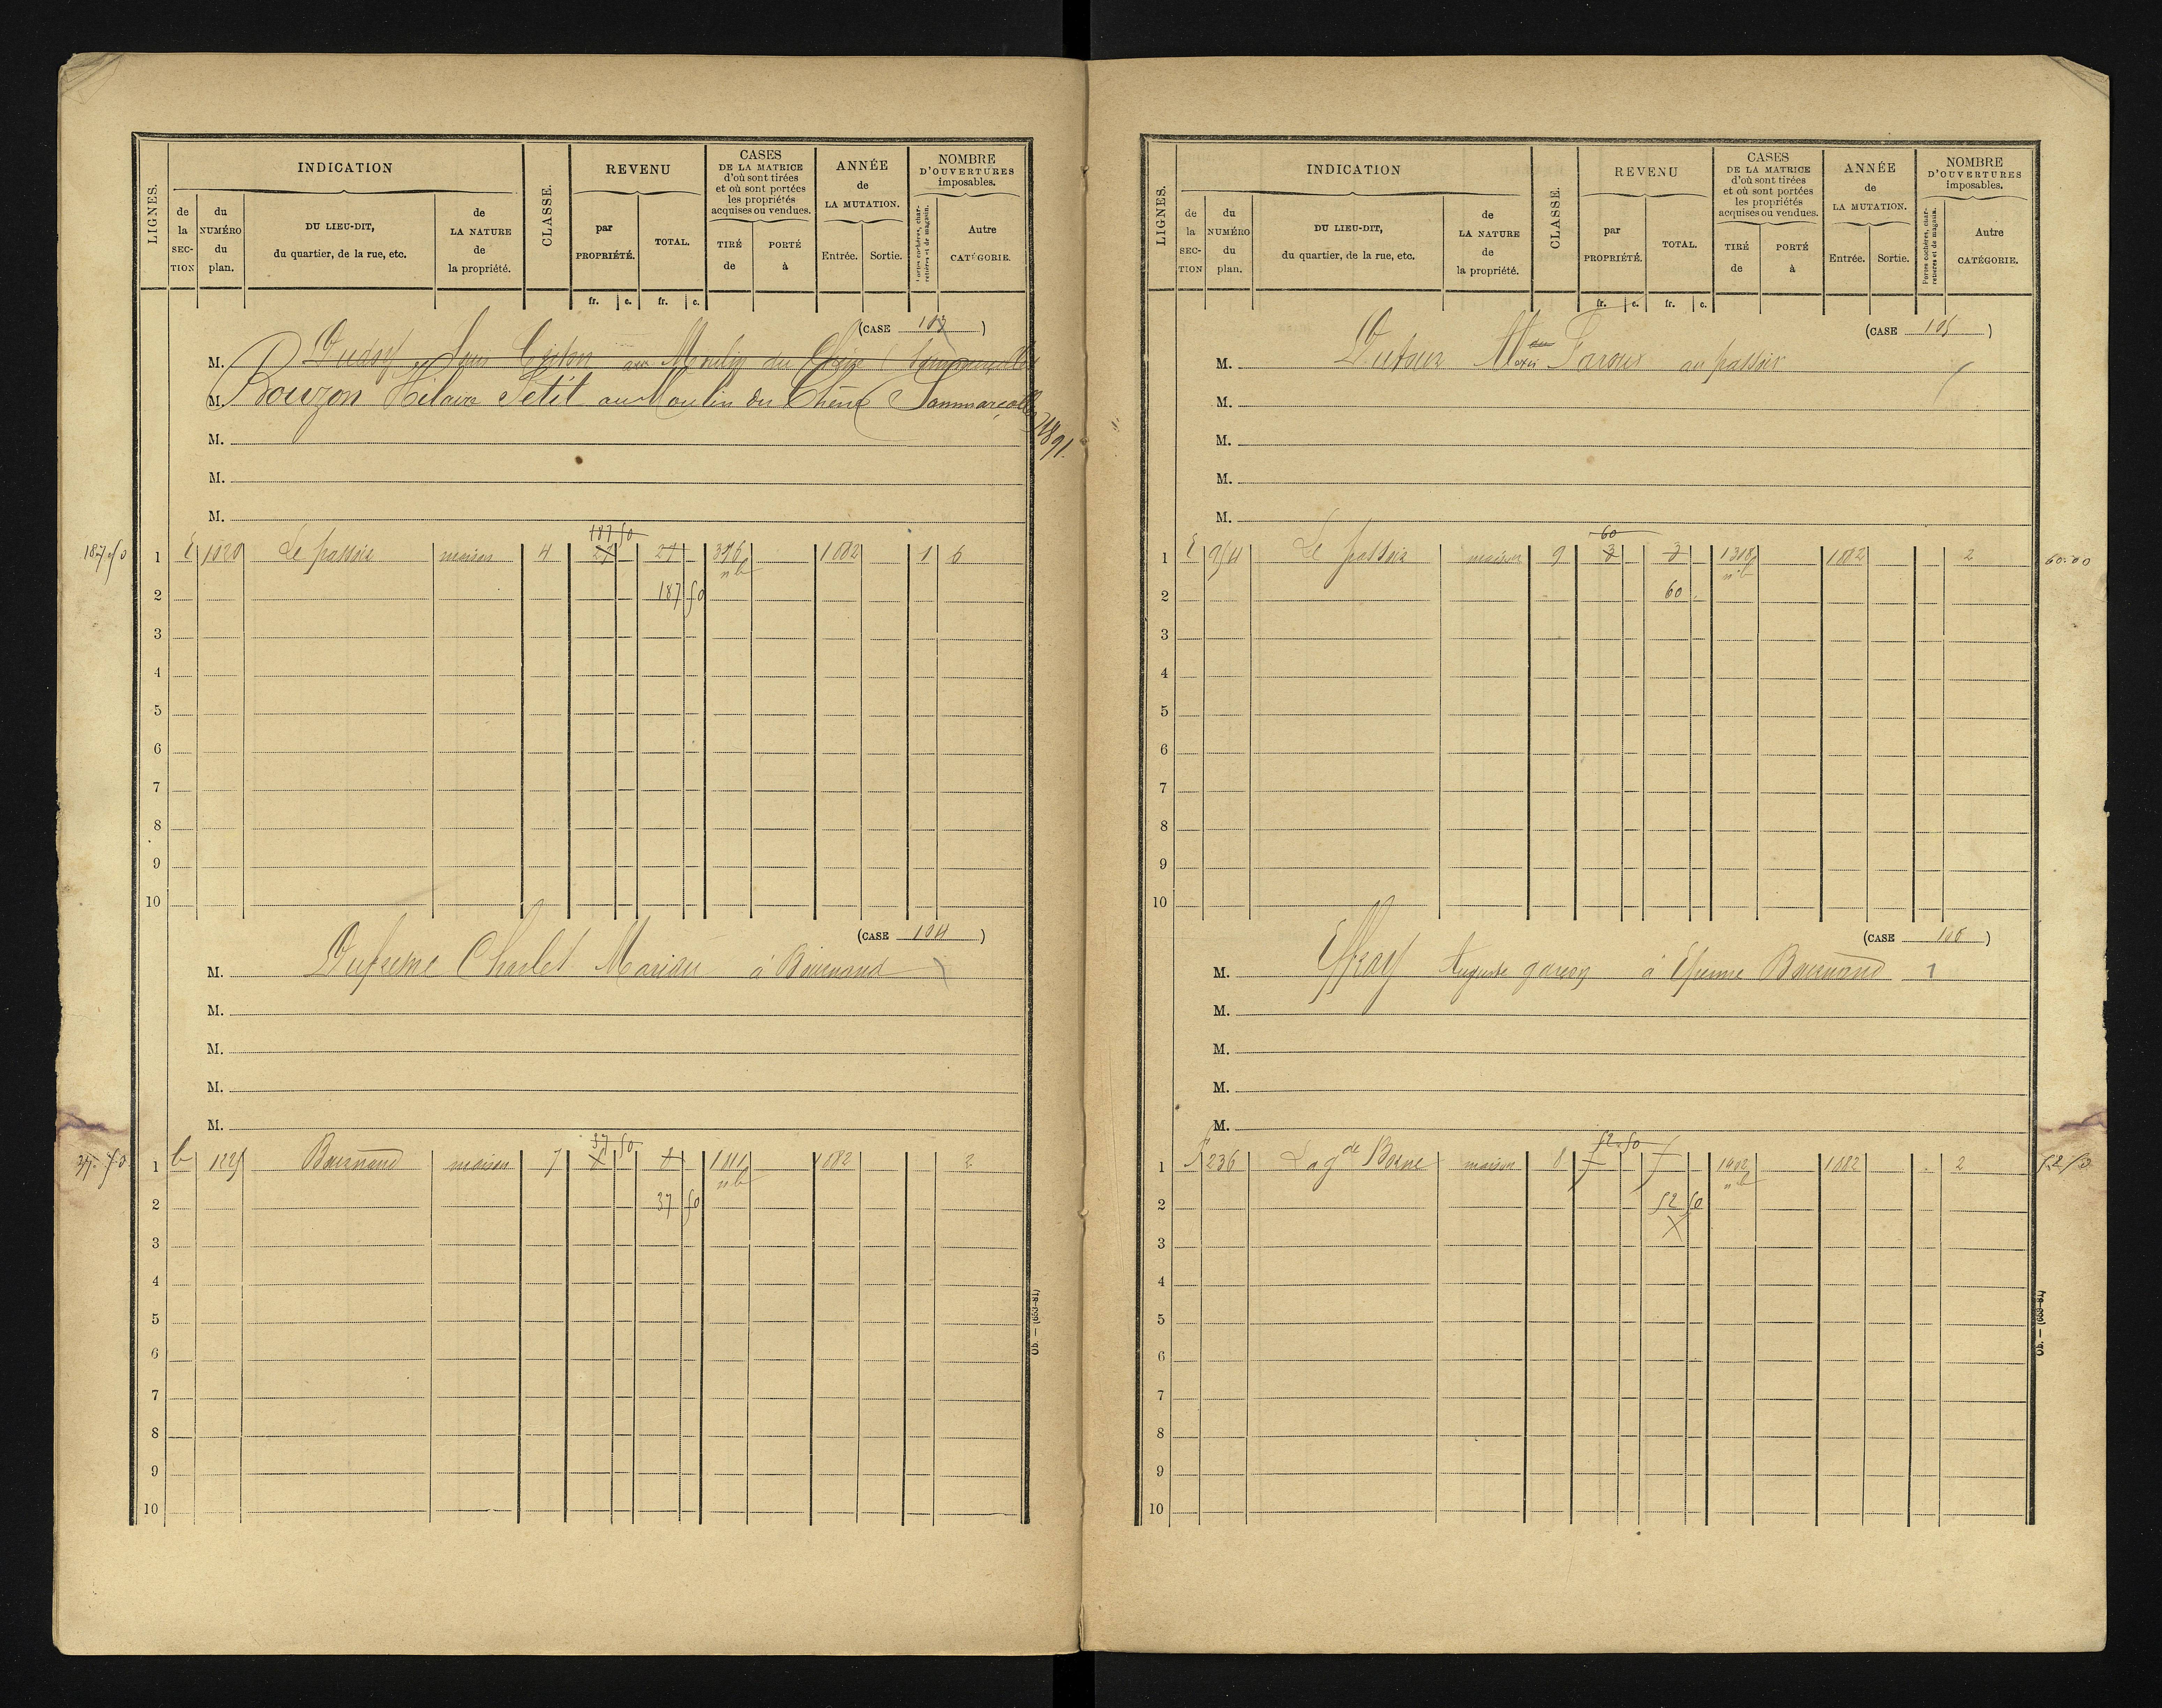 LIGNES.
INDICATION
de la SECTION
du NUMÉRO du plan.
DU LIEU-DIT, du quartier, de la rue, etc.
de LA NATURE de la propriété.
CLASSE.
REVENU
par PROPRIÉTÉ.
TOTAL.
fr. c. fr. c.
CASES DE LA MATRICE d'où sont tirées et où sont portées les propriétés acquises ou vendues.
TIRÉ de
PORTÉ à
ANNÉE de LA MUTATION.
Entrée. Sortie.
NOMBRE D'OUVERTURES imposables.
Portes cochères, charretières et de magasin.
Autre CATÉGORIE.
(CASE 103)
M. au Moulin du Chêne
M. Bouzon Hilaire Petit au Moulin du Chêne Sammarçolles 1891.
M.
M.
M.
187 50
187.50 1 E 1020 Le passoir maison 4 27 27 396 1882 1 6
nb
2 187 50
3
4
5
6
7
8
9
10
(CASE 104)
M. Dufresne Charles Mariau à Bournand
M.
M.
M.
M.
37 50
37.50 1 b Bournand maison 7 1882 2
nb
2 37 50
3
4
5
6
7
8
9
10
Ob. — (699-81)
LIGNES.
INDICATION
de la SECTION
du NUMÉRO du plan.
DU LIEU-DIT, du quartier, de la rue, etc.
de LA NATURE de la propriété.
CLASSE.
REVENU
par PROPRIÉTÉ.
TOTAL.
fr. c. fr. c.
CASES DE LA MATRICE d'où sont tirées et où sont portées les propriétés acquises ou vendues.
TIRÉ de
PORTÉ à
ANNÉE de LA MUTATION.
Entrée. Sortie.
NOMBRE D'OUVERTURES imposables.
Portes cochères, charretières et de magasin.
Autre CATÉGORIE.
(CASE 105)
M. Dutour au passoir
M.
M.
M.
M.
60
1 E 954 Le passoir maison 9 3 3 1318 1882 2 60.00
nb
2 60
3
4
5
6
7
8
9
10
(CASE 106)
M. Effray Auguste garçon à Bournand 1
M.
M.
M.
M.
52.50
1 F 236 La gde Borne maison 8 1902 1882 2 52.50
nb
2 52 50
3
4
5
6
7
8
9
10
Ob. — (699-81)